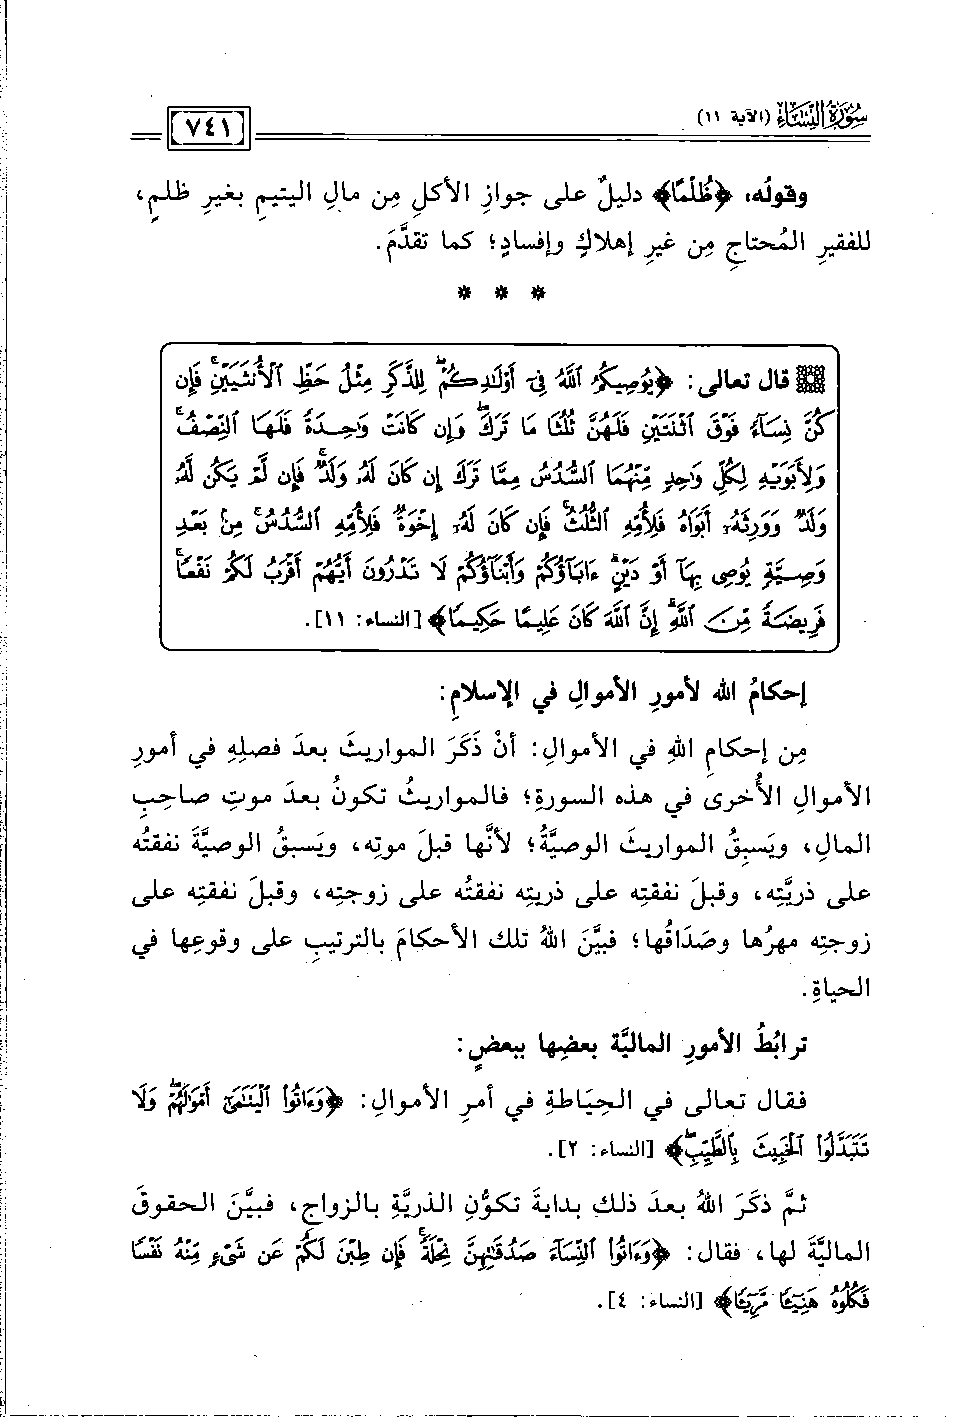 سُورَةُ النِّسَاءِ (الآية ١١)
٧٤١
وقولُه: ﴿ظُلْمًا﴾ دليلٌ على جوازِ الأكلِ مِن مالِ اليتيمِ بغيرِ ظلمٍ،
للفقيرِ المُحتاجِ مِن غيرِ إهلاكٍ وإفسادٍ؛ كما تقدَّمَ.
* * *
قال تعالى: ﴿يُوصِيكُمُ ٱللَّهُ فِىٓ أَوْلَٰدِكُمْ ۖ لِلذَّكَرِ مِثْلُ حَظِّ ٱلْأُنثَيَيْنِ ۚ فَإِن
كُنَّ نِسَآءً فَوْقَ ٱثْنَتَيْنِ فَلَهُنَّ ثُلُثَا مَا تَرَكَ ۖ وَإِن كَانَتْ وَٰحِدَةً فَلَهَا ٱلنِّصْفُ ۚ
وَلِأَبَوَيْهِ لِكُلِّ وَٰحِدٍ مِّنْهُمَا ٱلسُّدُسُ مِمَّا تَرَكَ إِن كَانَ لَهُۥ وَلَدٌ ۚ فَإِن لَّمْ يَكُن لَّهُۥ
وَلَدٌ وَوَرِثَهُۥٓ أَبَوَاهُ فَلِأُمِّهِ ٱلثُّلُثُ ۚ فَإِن كَانَ لَهُۥٓ إِخْوَةٌ فَلِأُمِّهِ ٱلسُّدُسُ ۚ مِنۢ بَعْدِ
وَصِيَّةٍ يُوصِى بِهَآ أَوْ دَيْنٍ ۗ ءَابَآؤُكُمْ وَأَبْنَآؤُكُمْ لَا تَدْرُونَ أَيُّهُمْ أَقْرَبُ لَكُمْ نَفْعًا ۚ
فَرِيضَةً مِّنَ ٱللَّهِ ۗ إِنَّ ٱللَّهَ كَانَ عَلِيمًا حَكِيمًا﴾ [النساء: ١١].
إحكامُ اللهِ لأمورِ الأموالِ في الإسلامِ:
مِن إحكامِ اللهِ في الأموالِ: أنْ ذَكَرَ المواريثَ بعدَ فصلِهِ في أمورِ
الأموالِ الأُخرى في هذه السورةِ؛ فالمواريثُ تكونُ بعدَ موتِ صاحبِ
المالِ، ويَسبِقُ المواريثَ الوصيَّةُ؛ لأنَّها قبلَ موتِه، ويَسبقُ الوصيَّةَ نفقتُه
على ذريَّتِه، وقبلَ نفقتِه على ذريتِه نفقتُه على زوجتِه، وقبلَ نفقتِه على
زوجتِه مهرُها وصَدَاقُها؛ فبيَّنَ اللهُ تلك الأحكامَ بالترتيبِ على وقوعِها في
الحياةِ.
ترابُطُ الأمورِ الماليَّة بعضِها ببعضٍ:
فقال تعالى في الحِيَاطةِ في أمرِ الأموالِ: ﴿وَءَاتُوا۟ ٱلْيَتَٰمَىٰٓ أَمْوَٰلَهُمْ ۖ وَلَا
تَتَبَدَّلُوا۟ ٱلْخَبِيثَ بِٱلطَّيِّبِ ۖ﴾ [النساء: ٢].
ثمَّ ذكَرَ اللهُ بعدَ ذلك بدايةَ تكوُّنِ الذريَّةِ بالزواجِ، فبيَّنَ الحقوقَ
الماليَّةَ لها، فقال: ﴿وَءَاتُوا۟ ٱلنِّسَآءَ صَدُقَٰتِهِنَّ نِحْلَةً ۚ فَإِن طِبْنَ لَكُمْ عَن شَىْءٍ مِّنْهُ نَفْسًا
فَكُلُوهُ هَنِيٓـًٔا مَّرِيٓـًٔا﴾ [النساء: ٤].